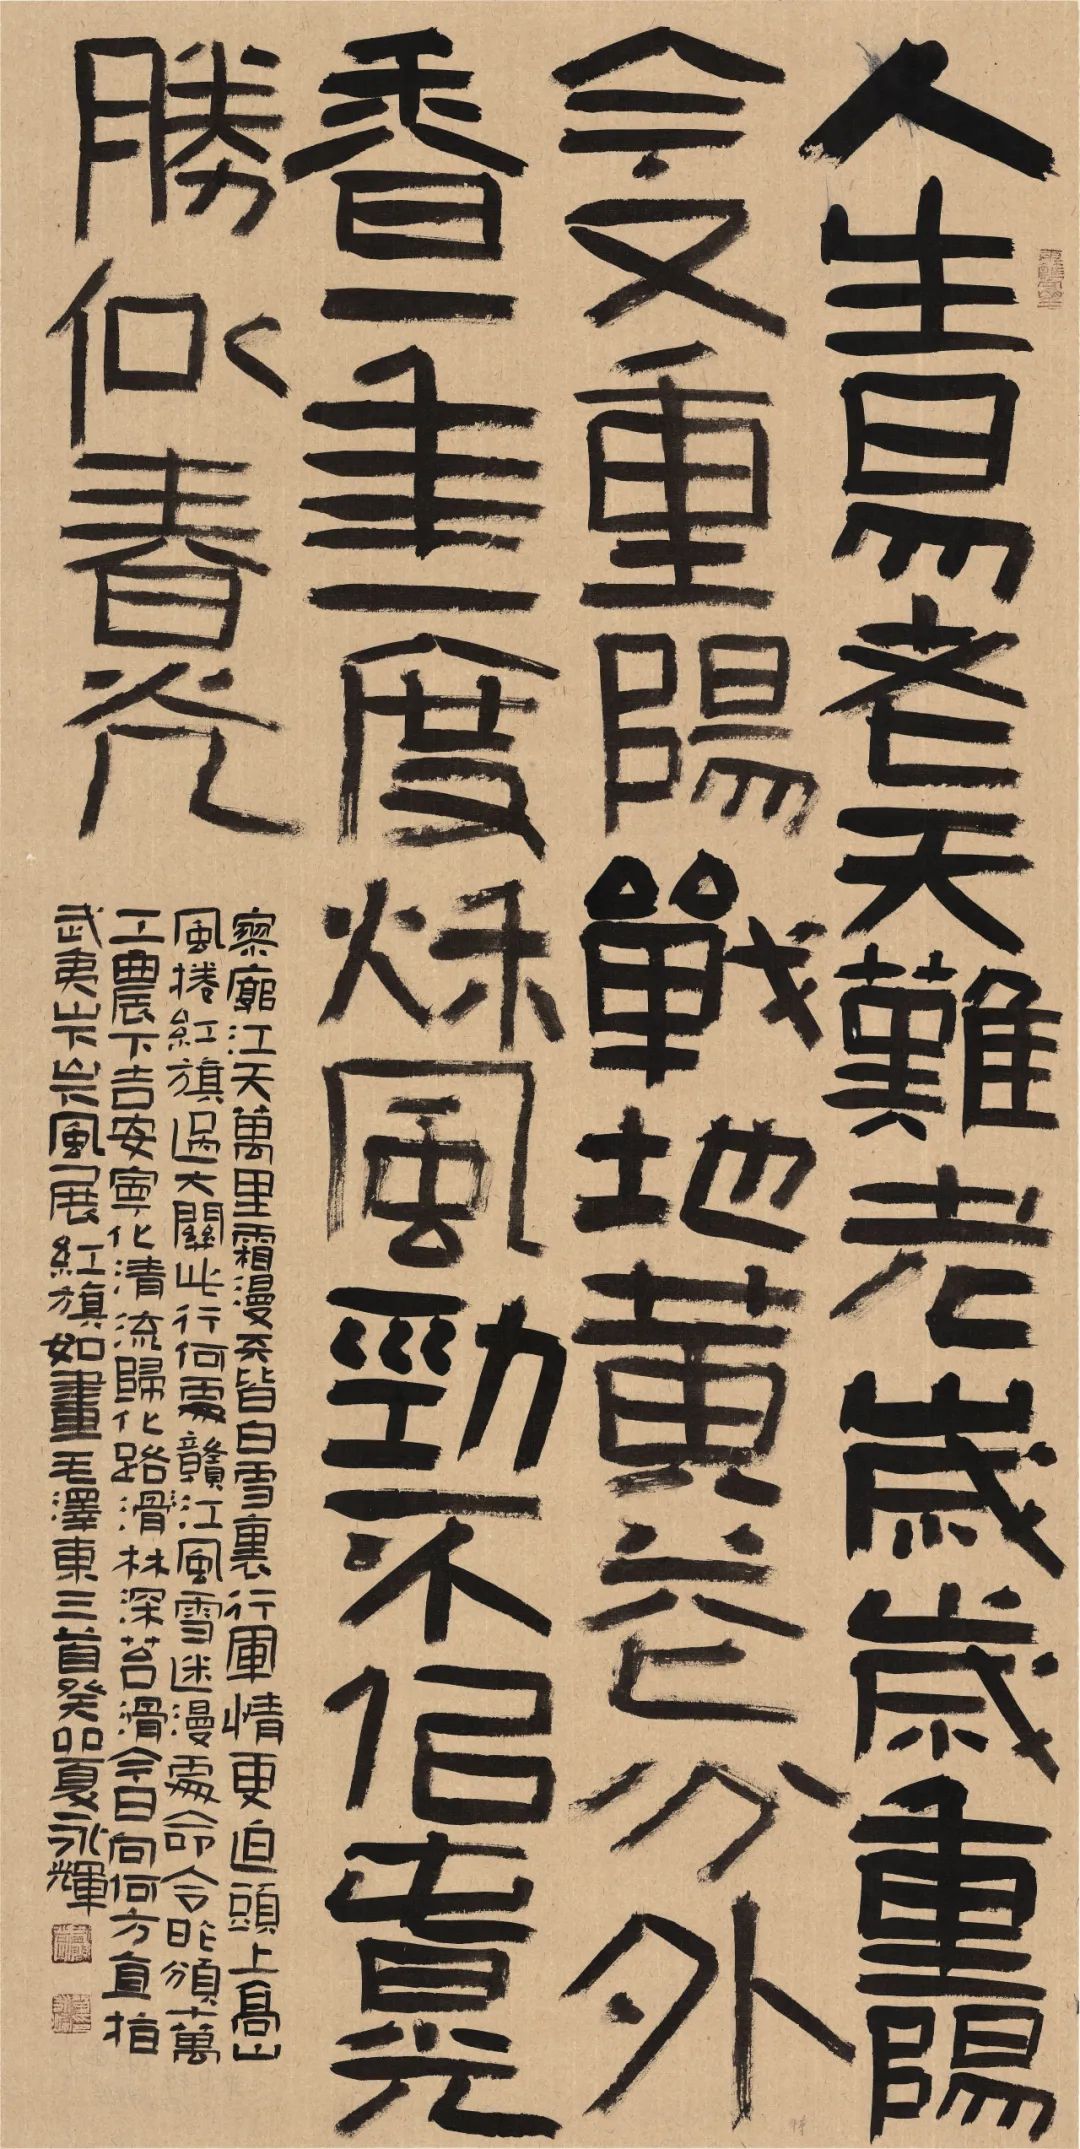 人生易老天難老歲歲重陽
今又重陽戰地黃花分外
香一年一度秋風勁不似春光
勝似春光
寥廓江天萬里霜漫天皆白雪裏行軍情更迫頭上高山
風捲紅旗過大關此行何處贛江風雪迷漫處命令昨頒十萬
工農下吉安寧化清流歸化路滑林深苔滑今日向何方直指
武夷山下山下風展紅旗如畫毛澤東三首癸卯夏永輝